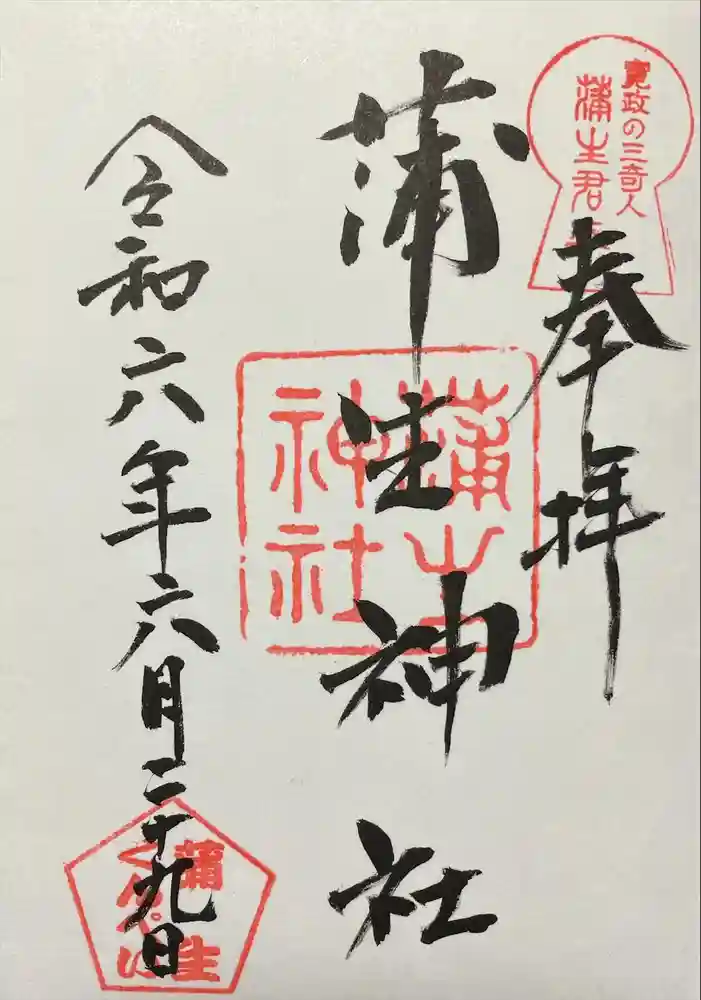 寛政の三奇人
蒲生君平
奉拝
蒲生神社
蒲生
神社
令和六年六月二十九日
蒲生
くんぺい